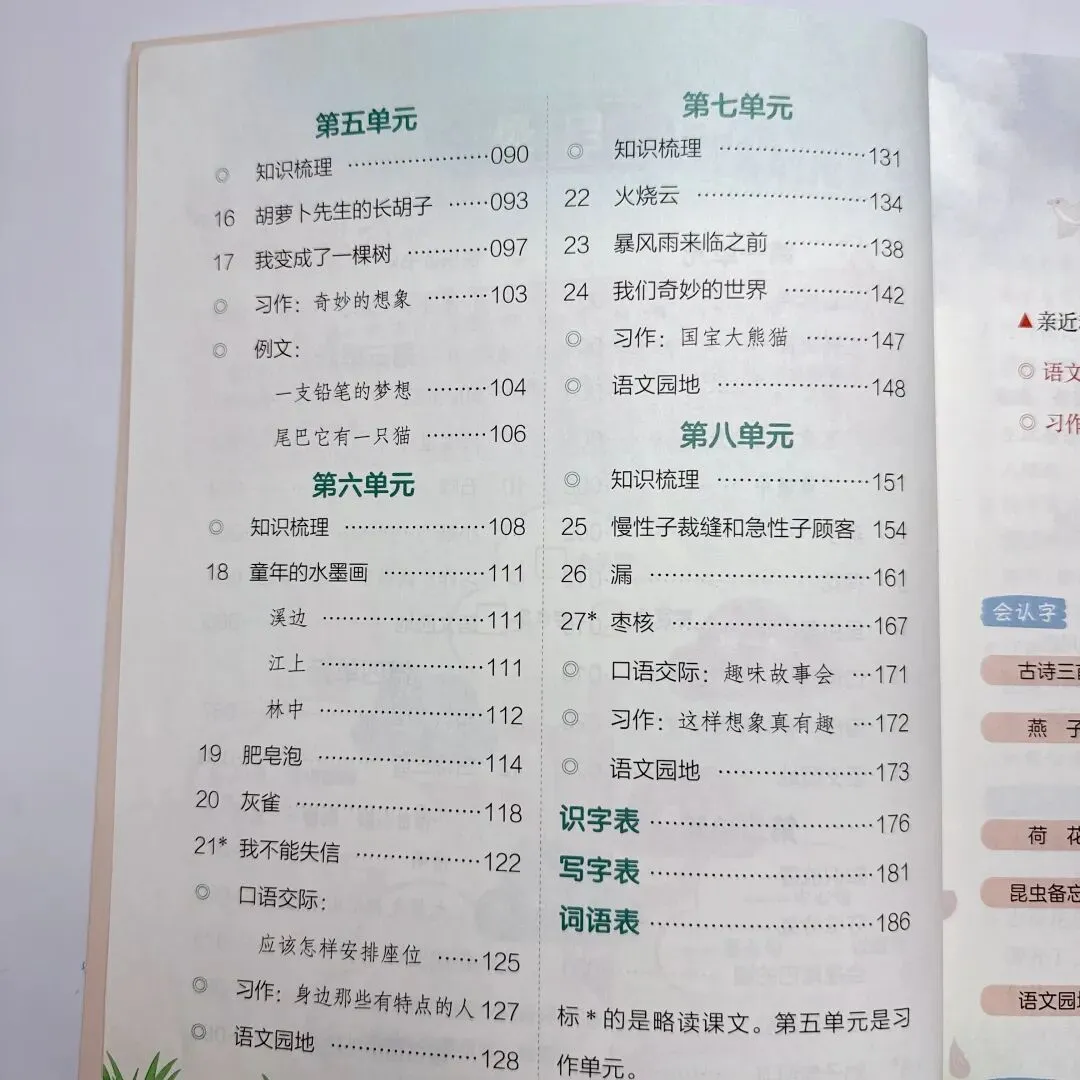 第五单元
◎ 知识梳理 ······················090
16 胡萝卜先生的长胡子 ······093
17 我变成了一棵树 ············097
◎ 习作：奇妙的想象 ·········103
◎ 例文：
一支铅笔的梦想 ·········104
尾巴它有一只猫 ·········106
第六单元
◎ 知识梳理 ·····················108
18 童年的水墨画 ···············111
溪边 ························111
江上 ························111
林中 ························112
19 肥皂泡 ························114
20 灰雀 ···························118
21* 我不能失信 ··················122
◎ 口语交际：
应该怎样安排座位 ······125
◎ 习作：身边那些有特点的人 127
◎ 语文园地 ·····················128
第七单元
◎ 知识梳理 ·····················131
22 火烧云 ························134
23 暴风雨来临之前 ············138
24 我们奇妙的世界 ············142
◎ 习作：国宝大熊猫 ·········147
◎ 语文园地 ·····················148
第八单元
◎ 知识梳理 ·····················151
25 慢性子裁缝和急性子顾客 154
26 漏 ······························161
27* 枣核 ···························167
◎ 口语交际：趣味故事会 ···171
◎ 习作：这样想象真有趣 ···172
◎ 语文园地 ·····················173
识字表 ·······························176
写字表 ·······························181
词语表 ·······························186
标*的是略读课文。第五单元是习
作单元。
▲亲近
◎ 语文
◎ 习作
会认字
古诗三首
燕 子
荷 花
昆虫备忘
语文园地